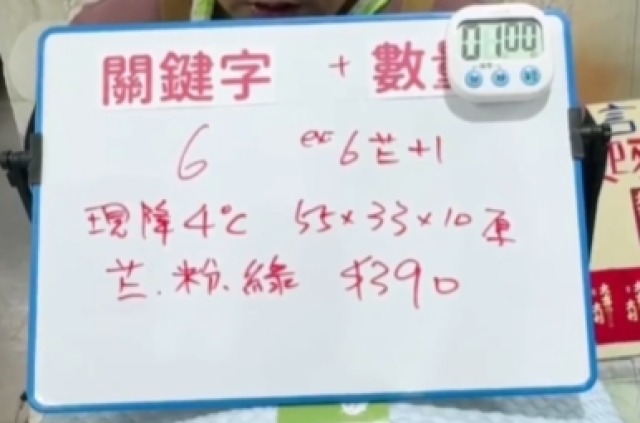 關鍵字 + 數
01:00
6 ex: 6芒+1
現降4℃ 55×33×10厚
芒.粉.綠 $390
言